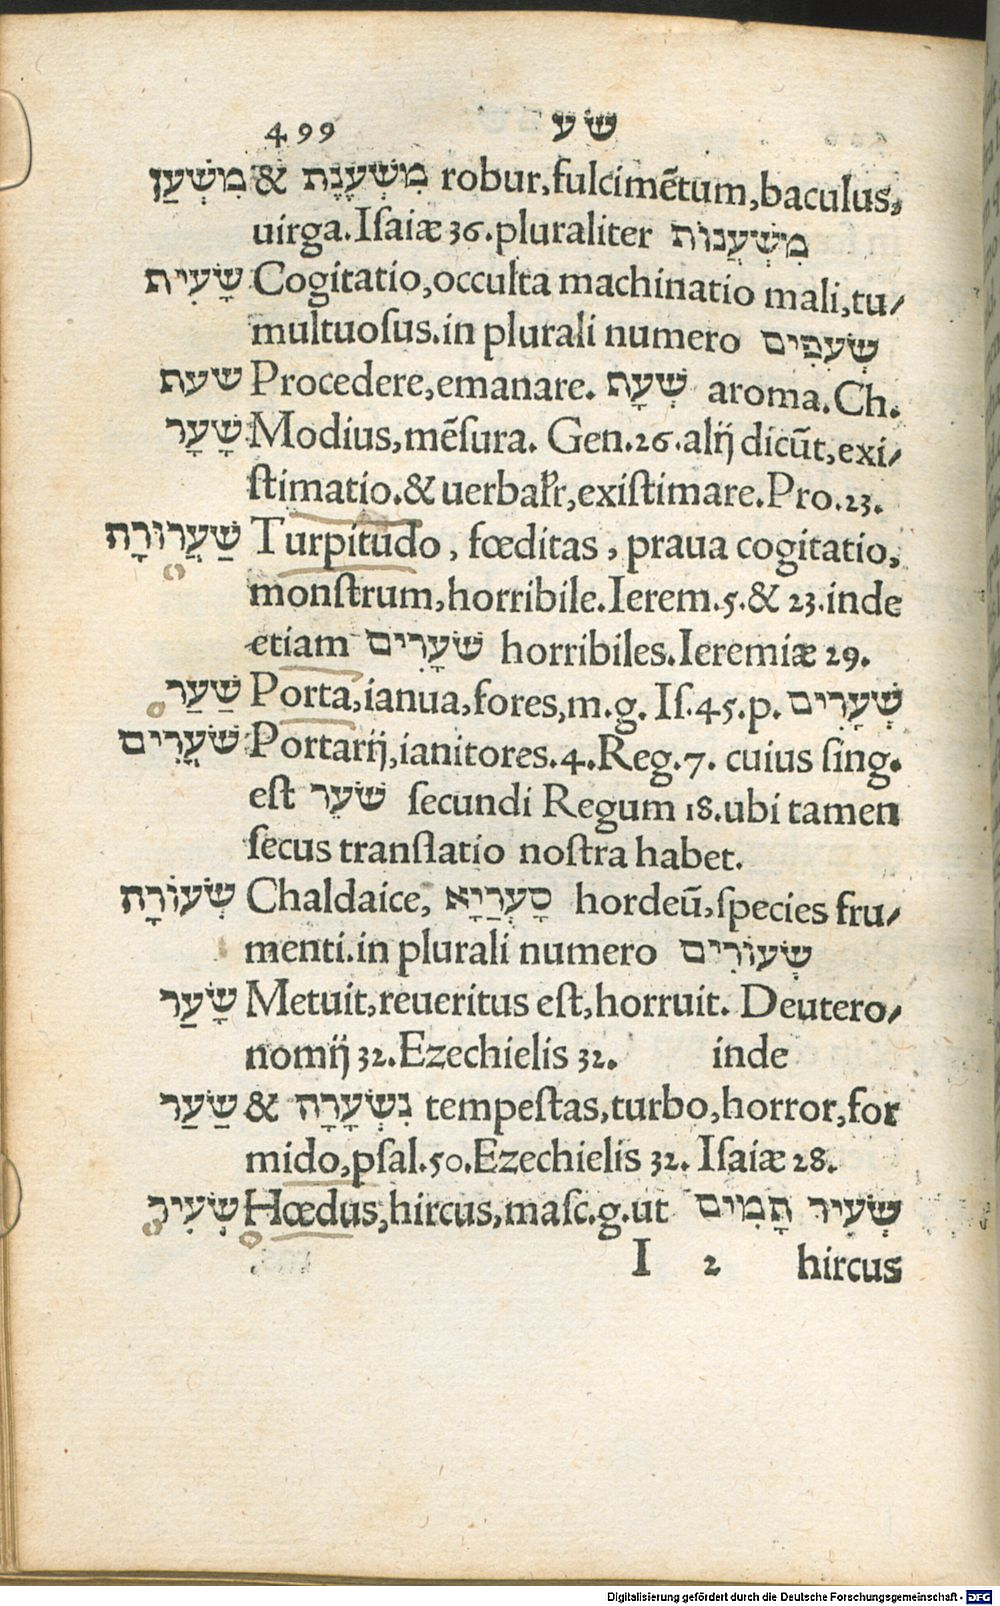 499 שע
מִשְׁעַן & מִשְׁעָנָת robur,fulcimētum,baculus,
uirga.Iſaiæ 36.pluraliter מִשְׁעֲנוֹת
שָׂעִית Cogitatio,occulta machinatio mali,tu/
multuoſus.in plurali numero שְׂעִפִּים
שעת Procedere,emanare. שְׁעָת aroma.Ch.
שָׁעָר Modius,mēſura. Gen.26.alij dicūt,exi/
ſtimatio.& uerbał̃r,exiſtimare.Pro.23.
שַׁעֲרוּרָה Turpitudo, fœditas, praua cogitatio,
monſtrum,horribile.Ierem.5.& 23.inde
etiam שֹׁעָרִים horribiles.Ieremiæ 29.
שַׁעַר Porta,ianua,fores,m.g. Iſ.45.p. שְׁעָרִים
שֹׁעֲרִים Portarij,ianitores.4.Reg.7. cuius ſing.
eſt שֹׁעֵר ſecundi Regum 18.ubi tamen
ſecus tranſlatio noſtra habet.
שְׂעוֹרָה Chaldaice, סָעְרַיָא hordeū,ſpecies fru/
menti.in plurali numero שְׂעוֹרִים
שָׂעַר Metuit,reueritus eſt,horruit. Deutero/
nomij 32.Ezechielis 32. inde
שַׂעַר & נִשְׂעָרָה tempeſtas,turbo,horror,for
mido,pſal.50.Ezechielis 32. Iſaiæ 28.
שָׂעִיר Hœdus,hircus,maſc.g.ut שְׂעִיר תָּמִים
I 2 hircus
Digitalisierung gefördert durch die Deutsche Forschungsgemeinschaft - DFG